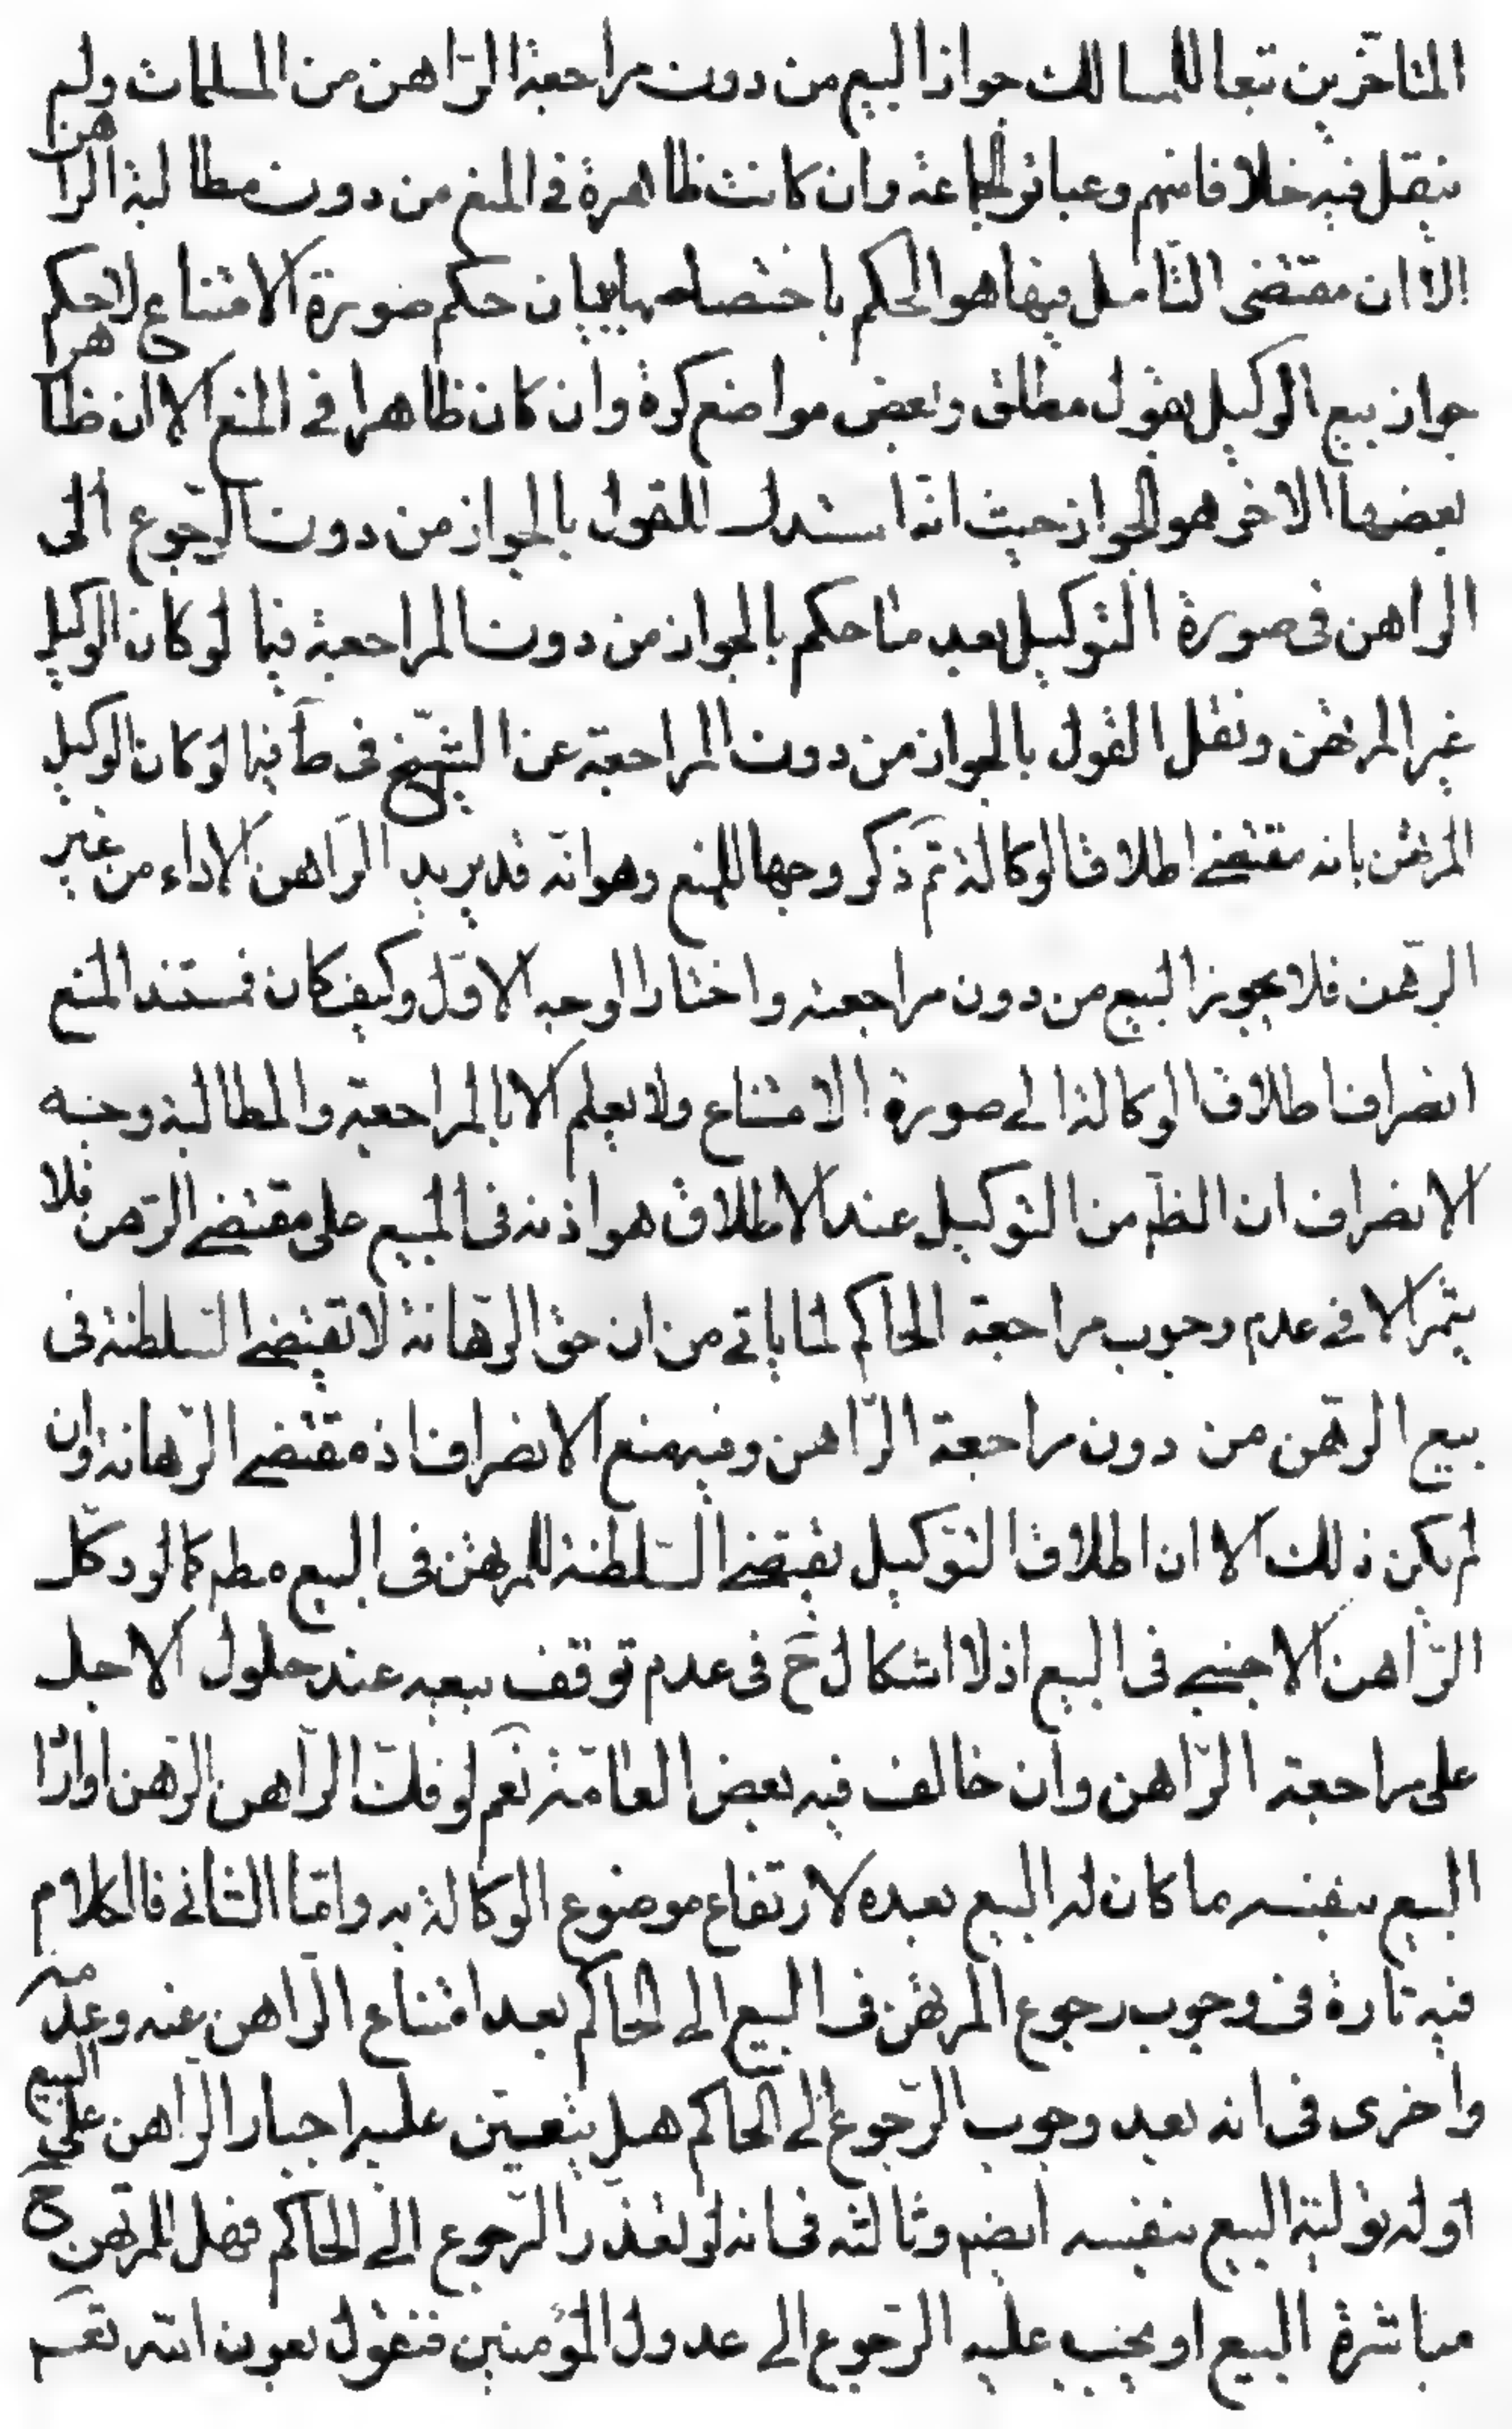 المتاخّرين تبعا للمسالك جواز البيع من دون مراجعة الرّاهن من المسلمات ولم
ينقل فيه خلافا منهم وعبائر الجماعة وان كانت ظاهرة فى المنع من دون مطالبة الراهن
الا ان مقتضى التّامل فيها هو الحكم باختصاصها ببيان حكم صورة الامتناع لا حكم
جواز بيع الوكيل بقول مطلق وبعض مواضع كرة وان كان ظاهرا فى المنع الا ان ظاهر
بعضها الاخر هو الجواز حيث انّه استدل للقول بالجواز من دون الرّجوع الى
الراهن فى صورة التوكيل بعد ما حكم بالجواز من دون المراجعة فيما لو كان الوكيل
غير المرتهن ونقل القول بالجواز من دون المراجعة عن الشّيخ فى ط فيما لو كان الوكيل
المرتهن بانه مقتضى اطلاق الوكالة ثمّ ذكر وجها للمنع وهو انّه قد يريد الرّاهن الاداء من غير
الرّهن فلا يجوز البيع من دون مراجعته واختار الوجه الاوّل وكيف كان فمستند المنع
انصراف اطلاق الوكالة الى صورة الامتناع ولا يعلم الا بالمراجعة والمطالبة وجه
الانصراف ان الظّ من التوكيل عند الاطلاق هو اذنه فى المبيع على مقتضى الرّهن فلا
يثمر الا فى عدم وجوب مراجعة الحاكم لما ياتى من ان حق الرّهانة لا تقتضى السّلطنة فى
بيع الرّهن من دون مراجعة الرّاهن وفيه منع الانصراف اذ مقتضى الرّهانة وان
لم يكن ذلك الا ان اطلاق التوكيل يقتضى السّلطنة للمرتهن فى البيع مطم كما لو وكّل
الرّاهن الاجنبى فى البيع اذ لا اشكال ح فى عدم توقف بيعه عند حلول الاجل
على مراجعة الرّاهن وان خالف فيه بعض العامّة نعم لو فكّ الرّاهن الرّهن او اراد
البيع بنفسه ما كان له البيع بعده لارتفاع موضوع الوكالة به وامّا الثانى فالكلام
فيه تارة فى وجوب رجوع المرتهن فى البيع الى الحاكم بعد امتناع الرّاهن عنه وعدمه
واخرى فى انه بعد وجوب الرّجوع الى الحاكم هل يتعيّن عليه اجبار الرّاهن على البيع
او له تولية البيع بنفسه ايضم وثالثة فى انه لو تعذّر الرّجوع الى الحاكم فهل للمرتهن ح
مباشرة البيع او يجب عليه الرّجوع الى عدول المؤمنين فنقول بعون الله تعم